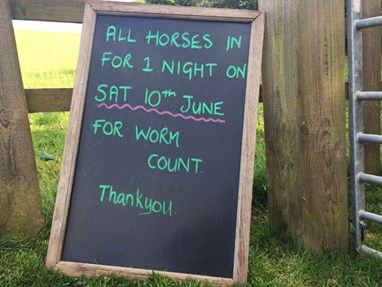 ALL HORSES IN
FOR 1 NIGHT ON
SAT 10th JUNE
FOR WORM
COUNT.
Thankyou.